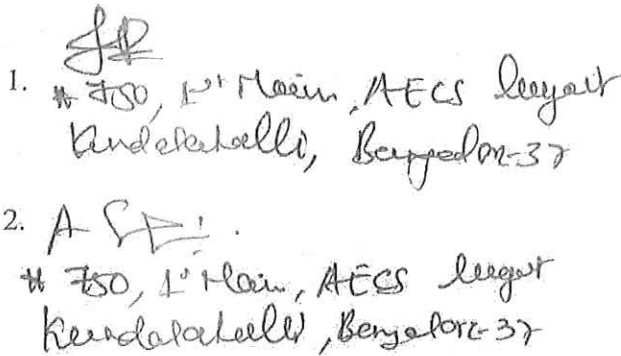 1.
# 750, 1st Main, AECS Layout
Kundalahalli, Bangalore-37
2.
# 750, 1st Main, AECS Layout
Kundalahalli, Bangalore-37